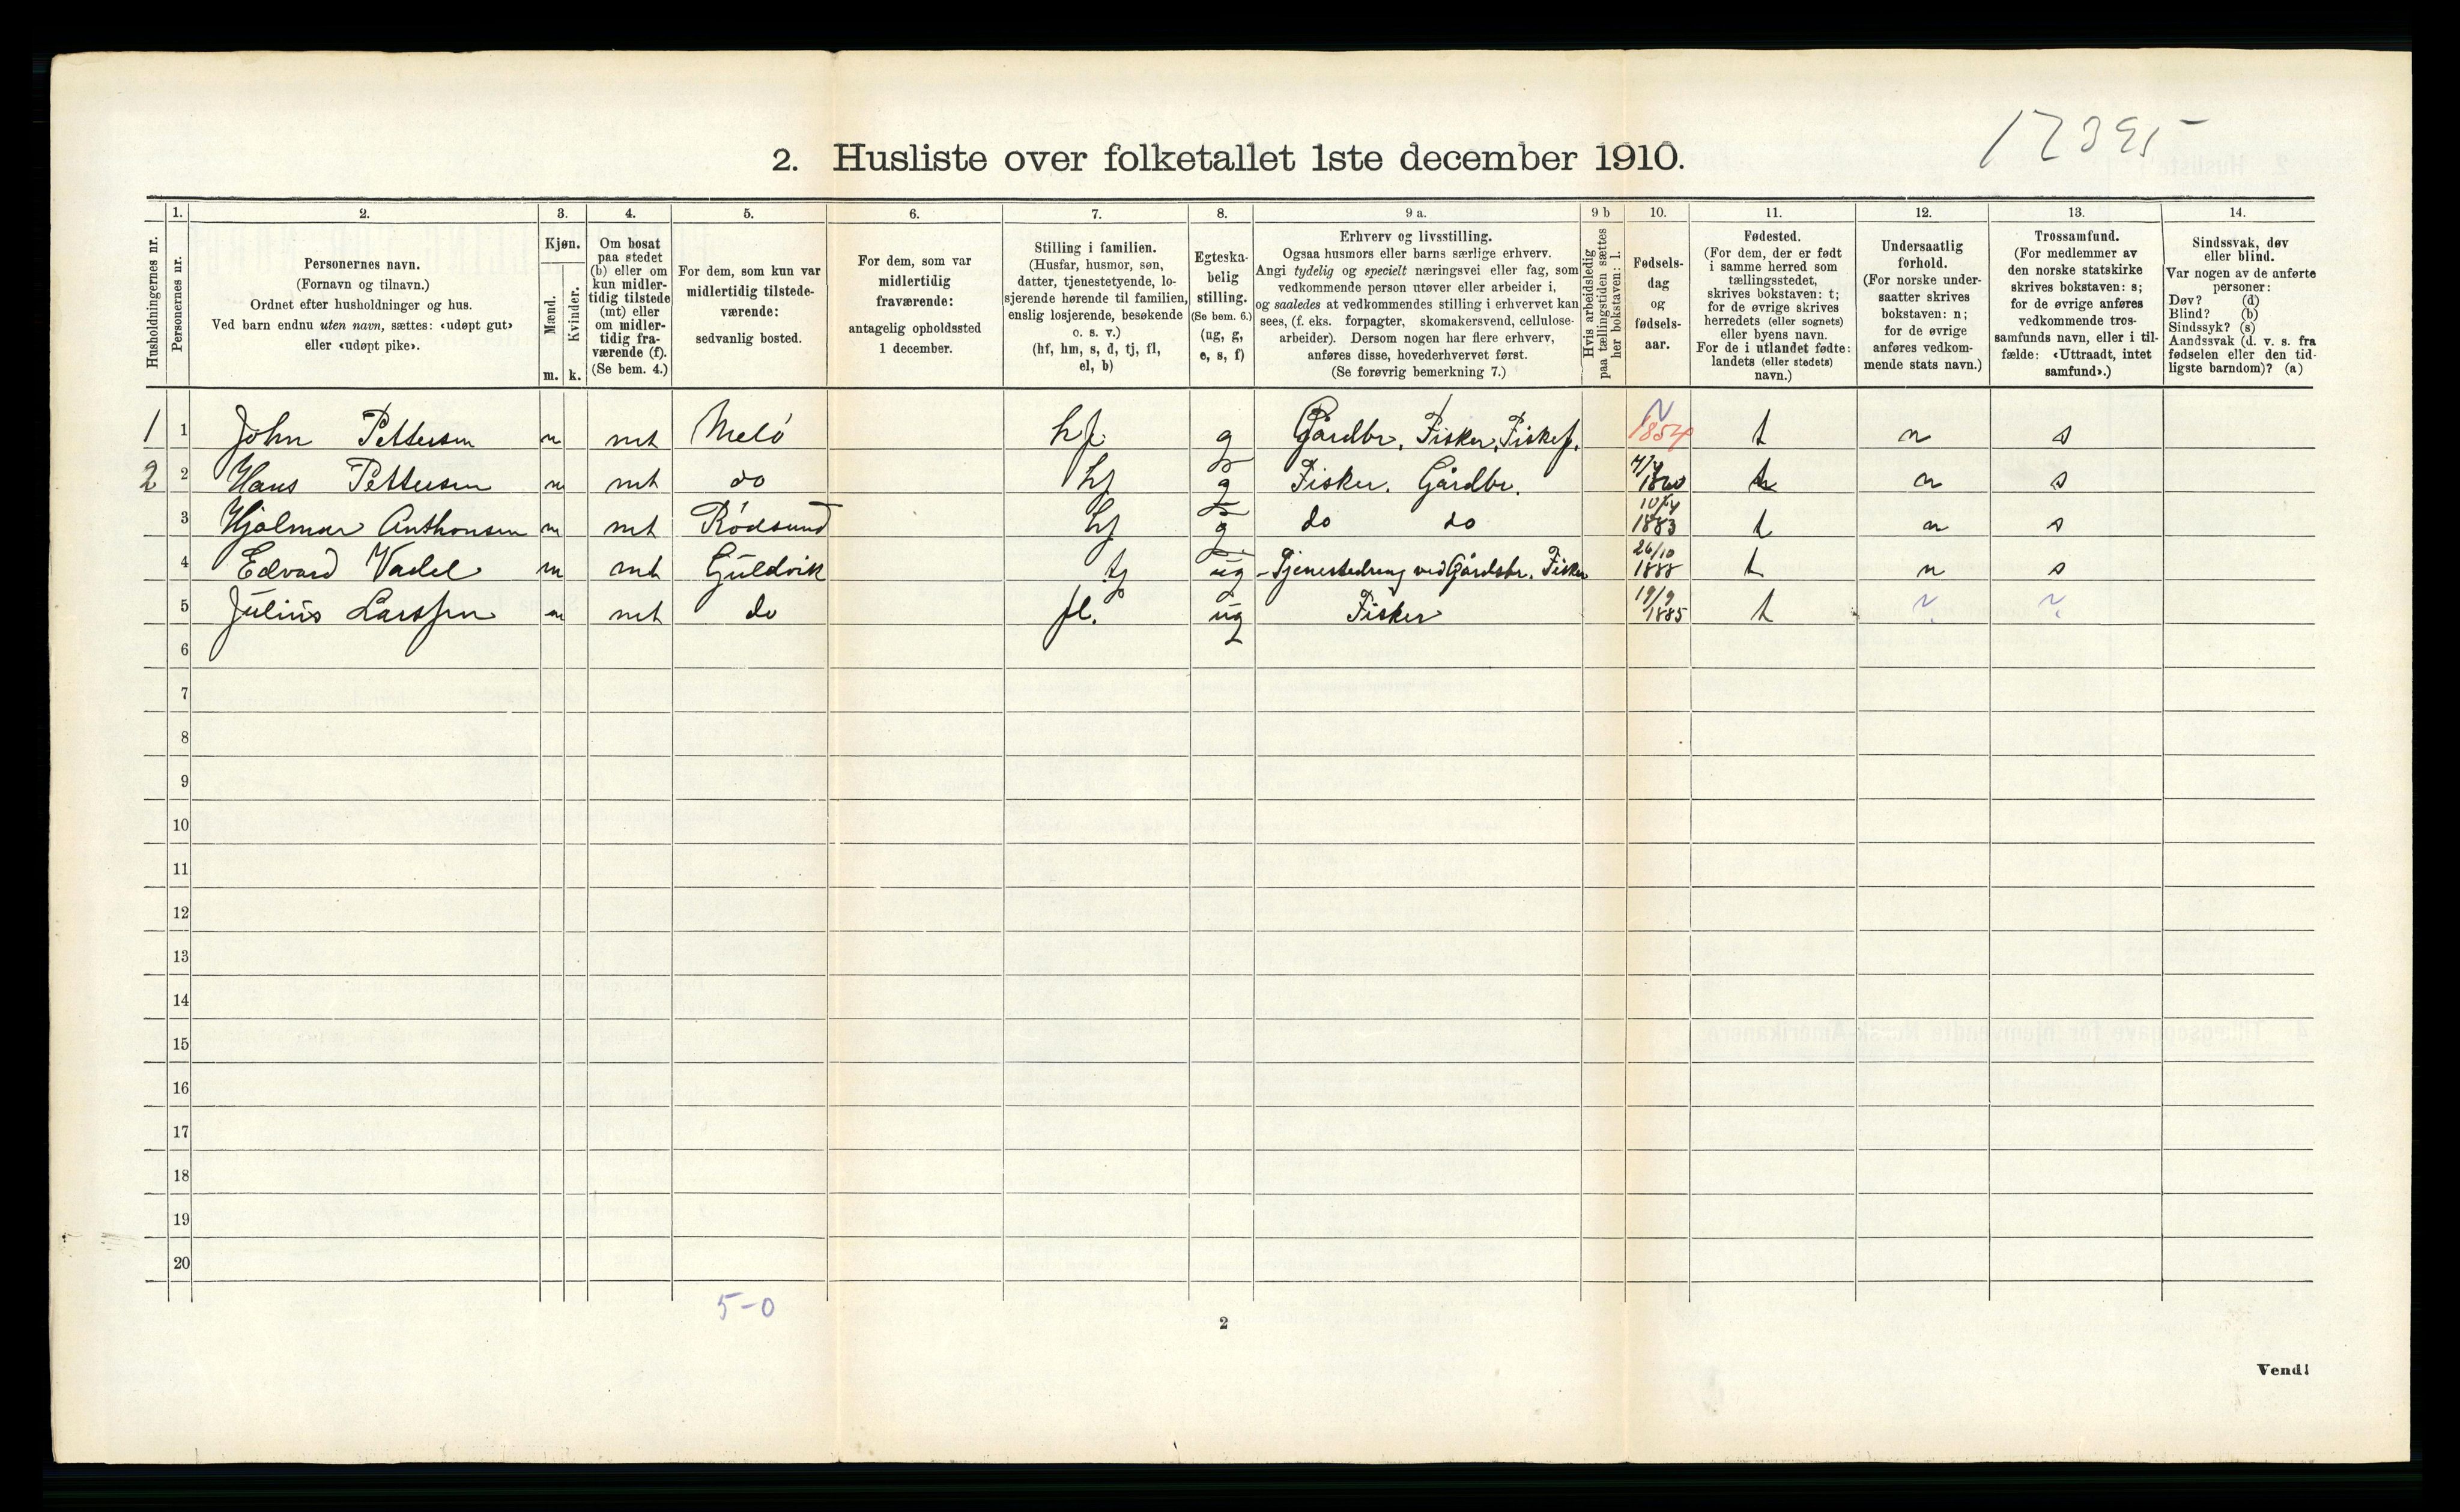 12395
2. Husliste over folketallet 1ste december 1910.
1. 2. 3. 4. 5. 6. 7. 8. 9 a. 9 b 10. 11. 12. 13. 14.
Husholdningernes nr.
Personernes nr.
Personernes navn.
(Fornavn og tilnavn.)
Ordnet efter husholdninger og hus.
Ved barn endnu uten navn, sættes: «udøpt gut»
eller «udøpt pike».
Kjøn.
Mænd.
Kvinder.
m. k.
Om bosat
paa stedet
(b) eller om
kun midler-
tidig tilstede
(mt) eller
om midler-
tidig fra-
værende (f).
(Se bem. 4.)
For dem, som kun var
midlertidig tilstede-
værende:
sedvanlig bosted.
For dem, som var
midlertidig
fraværende:
antagelig opholdssted
1 december.
Stilling i familien.
(Husfar, husmor, søn,
datter, tjenestetyende, lo-
sjerende hørende til familien,
enslig losjerende, besøkende
o. s. v.)
(hf, hm, s, d, tj, fl,
el, b)
Egteska-
belig
stilling.
(Se bem. 6.)
(ug, g,
e, s, f)
Erhverv og livsstilling.
Ogsaa husmors eller barns særlige erhverv.
Angi tydelig og specielt næringsvei eller fag, som
vedkommende person utøver eller arbeider i,
og saaledes at vedkommendes stilling i erhvervet kan
sees, (f. eks. forpagter, skomakersvend, cellulose-
arbeider). Dersom nogen har flere erhverv,
anføres disse, hovederhvervet først.
(Se forøvrig bemerkning 7.)
Hvis arbeidsledig
paa tællingstiden sættes
her bokstaven: l.
Fødsels-
dag
og
fødsels-
aar.
Fødested.
(For dem, der er født
i samme herred som
tællingsstedet,
skrives bokstaven: t;
for de øvrige skrives
herredets (eller sognets)
eller byens navn.
For de i utlandet fødte:
landets (eller stedets)
navn.)
Undersaatlig
forhold.
(For norske under-
saatter skrives
bokstaven: n;
for de øvrige
anføres vedkom-
mende stats navn.)
Trossamfund.
(For medlemmer av
den norske statskirke
skrives bokstaven: s;
for de øvrige anføres
vedkommende tros-
samfunds navn, eller i til-
fælde: «Uttraadt, intet
samfund».)
Sindssvak, døv
eller blind.
Var nogen av de anførte
personer:
Døv? (d)
Blind? (b)
Sindssyk? (s)
Aandssvak (d. v. s. fra
fødselen eller den tid-
ligste barndom)? (a)
1 1 John Pettersen m mt Melö hf. g Gårdbr. Fisker, Fiskef. 1854 t n s
2 2 Hans Pettersen m mt do hf g Fisker. Gårdbr. 1860 t n s
3 Hjalmar Anthonsen m mt Rödsund hf g do do 10/4 1883 t n s
4 Edvard Vadel m mt Guldvik tj ug - Tjenestedreng ved Gårdsbr. Fisker 26/10 1888 t n s
5 Julius Larssen m mt do fl. ug Fisker 19/9 1885 t
6
7
8
9
10
11
12
13
14
15
16
17
18
19
20
5-0
2
Vend!